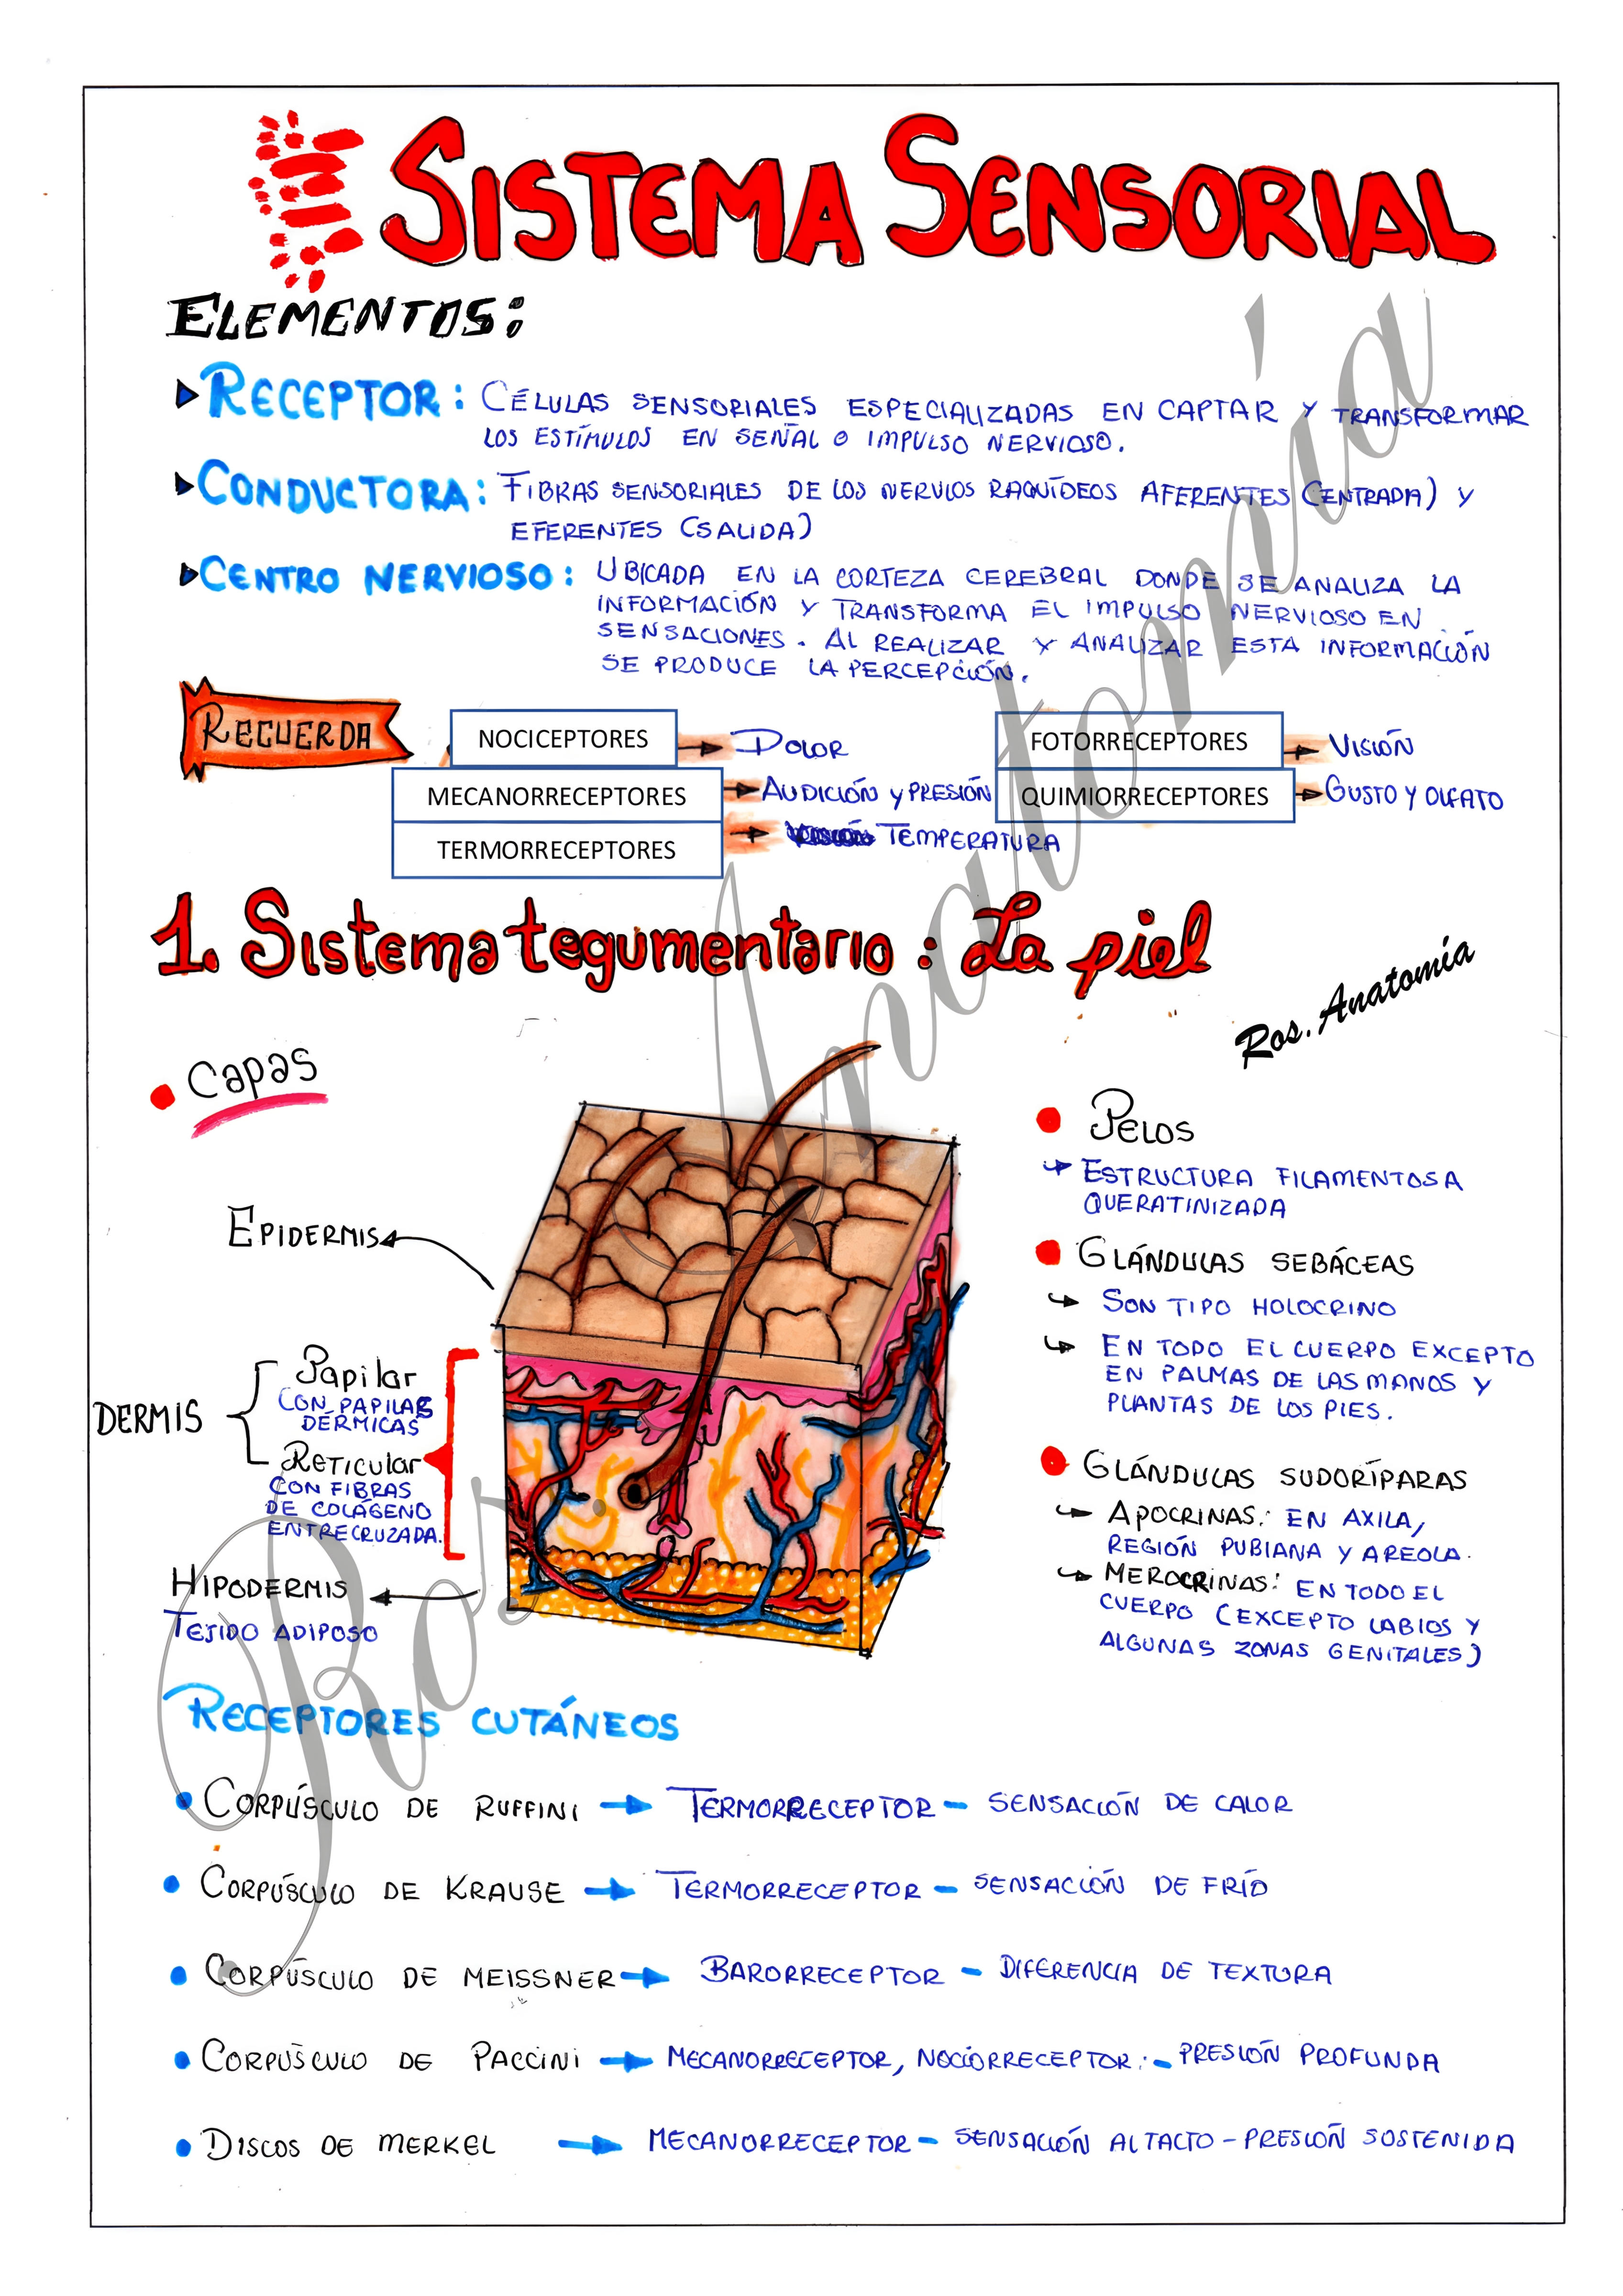 SISTEMA SENSORIAL
ELEMENTOS:
RECEPTOR: CÉLULAS SENSORIALES ESPECIALIZADAS EN CAPTAR Y TRANSFORMAR
LOS ESTÍMULOS EN SEÑAL O IMPULSO NERVIOSO.
CONDUCTORA: FIBRAS SENSORIALES DE LOS NERVIOS RAQUÍDEOS AFERENTES (ENTRADA) Y
EFERENTES (SALIDA)
CENTRO NERVIOSO: UBICADA EN LA CORTEZA CEREBRAL DONDE SE ANALIZA LA
INFORMACIÓN Y TRANSFORMA EL IMPULSO NERVIOSO EN
SENSACIONES. AL REALIZAR Y ANALIZAR ESTA INFORMACIÓN
SE PRODUCE LA PERCEPCIÓN.
RECUERDA
NOCICEPTORES DOLOR
MECANORRECEPTORES AUDICIÓN Y PRESIÓN
TERMORRECEPTORES TEMPERATURA
FOTORRECEPTORES VISIÓN
QUIMIORRECEPTORES GUSTO Y OLFATO
1. Sistema tegumentario: La piel
Ros. Anatomía
Capas
EPIDERMIS
DERMIS
Papilar
CON PAPILAS
DÉRMICAS
RETICULAR
CON FIBRAS
DE COLÁGENO
ENTRECRUZADA.
HIPODERMIS
TEJIDO ADIPOSO
PELOS
ESTRUCTURA FILAMENTOSA
QUERATINIZADA
GLÁNDULAS SEBÁCEAS
SON TIPO HOLOCRINO
EN TODO EL CUERPO EXCEPTO
EN PALMAS DE LAS MANOS Y
PLANTAS DE LOS PIES.
GLÁNDULAS SUDORÍPARAS
APOCRINAS: EN AXILA,
REGIÓN PUBIANA Y AREOLA.
MEROCRINAS: EN TODO EL
CUERPO (EXCEPTO LABIOS Y
ALGUNAS ZONAS GENITALES)
RECEPTORES CUTÁNEOS
CORPÚSCULO DE RUFFINI TERMORRECEPTOR - SENSACIÓN DE CALOR
CORPÚSCULO DE KRAUSE TERMORRECEPTOR - SENSACIÓN DE FRÍO
CORPÚSCULO DE MEISSNER BARORRECEPTOR - DIFERENCIA DE TEXTURA
CORPÚSCULO DE PACCINI MECANORRECEPTOR, NOCIORRECEPTOR: - PRESIÓN PROFUNDA
DISCOS DE MERKEL MECANORRECEPTOR - SENSACIÓN AL TACTO - PRESIÓN SOSTENIDA
Ros. Anatomía